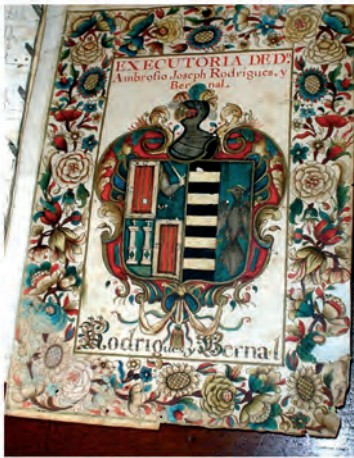 EXECUTORIA DE Dn.
Ambrosio Joseph Rodrigues, y
Bernal.
Rodrigues, y Bernal